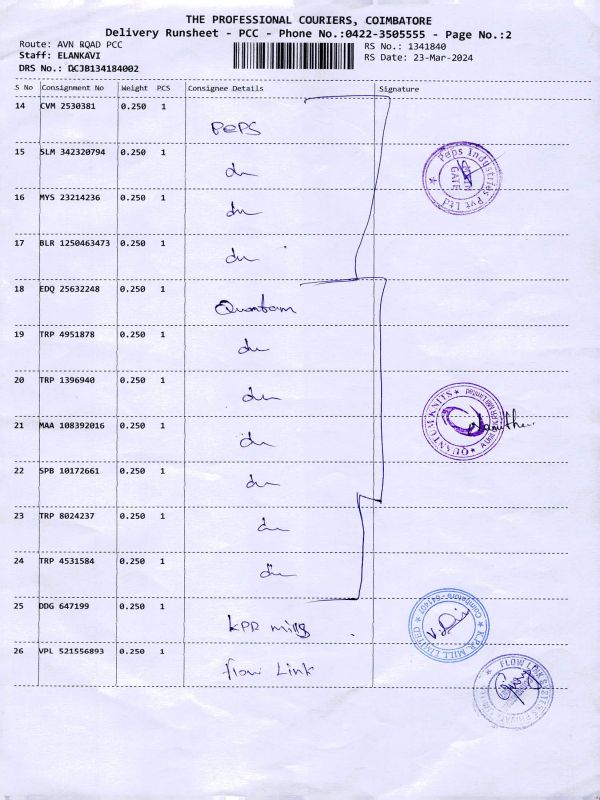 THE PROFESSIONAL COURIERS, COIMBATORE
Delivery Runsheet - PCC - Phone No.:0422-3505555 - Page No.:2
Route: AVN RQAD PCC RS No.: 1341840
Staff: ELANKAVI RS Date: 23-Mar-2024
DRS No.: DCJB134184002
S No Consignment No Weight PCS Consignee Details Signature
14 CVM 2530381 0.250 1
PEPS
15 SLM 342320794 0.250 1
du
16 MYS 23214236 0.250 1
du
17 BLR 1250463473 0.250 1
du
Peps Industries Pvt Ltd
GATE
18 EDQ 25632248 0.250 1
Quantum
19 TRP 4951878 0.250 1
du
20 TRP 1396940 0.250 1
du
21 MAA 108392016 0.250 1
du
QUANTUM KNITS
22 SPB 10172661 0.250 1
du
23 TRP 8024237 0.250 1
du
24 TRP 4531584 0.250 1
du
25 DDG 647199 0.250 1
KPR mills
K.P.R. MILL LIMITED
Coimbatore - 641407
26 VPL 521556893 0.250 1
flow Link
FLOW LINK